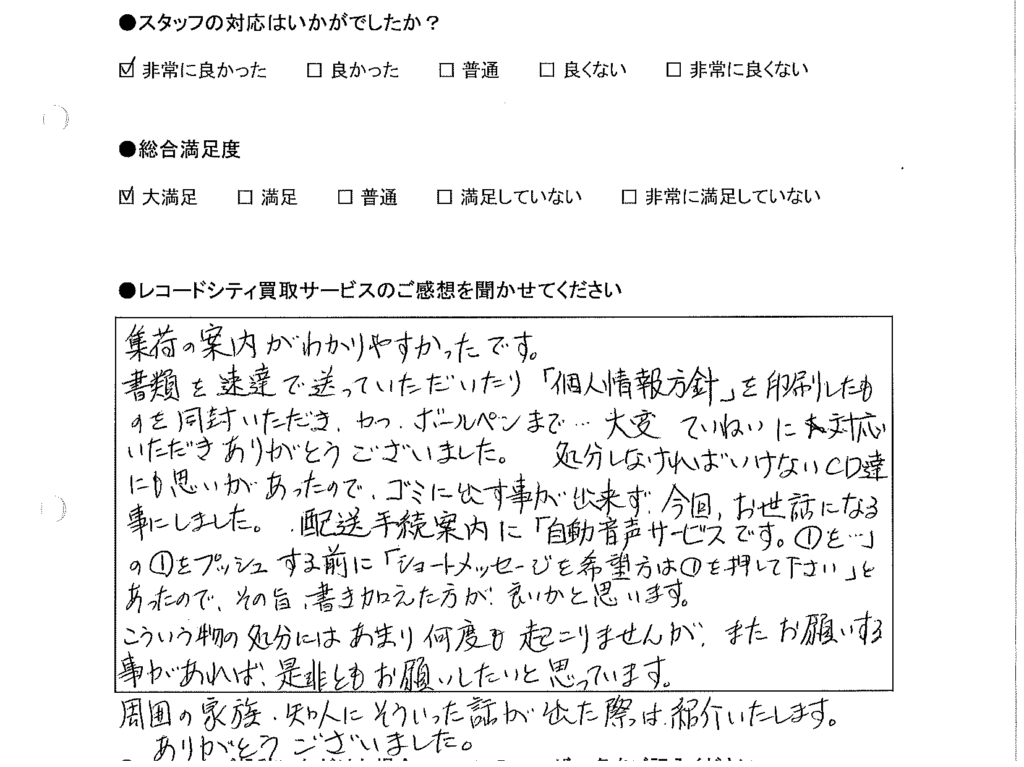 ●スタッフの対応はいかがでしたか？
☑ 非常に良かった　□ 良かった　□ 普通　□ 良くない　□ 非常に良くない
●総合満足度
☑ 大満足　□ 満足　□ 普通　□ 満足していない　□ 非常に満足していない
●レコードシティ買取サービスのご感想を聞かせてください
集荷の案内がわかりやすかったです。
書類を速達で送っていただいたり「個人情報方針」を印刷したも
のを同封いただき、かつ、ボールペンまで… 大変 ていねいに対応
いただきありがとうございました。 処分しなければいけないCD達
にも思いがあったので、ゴミに出す事が出来ず、今回、お世話になる
事にしました。 配送手続案内に「自動音声サービスです。①を…」
の①をプッシュする前に「ショートメッセージを希望方は①を押して下さい」と
あったので、その旨、書き加えた方が、良いかと思います。
こういう物の処分にはあまり何度も起こりませんが、またお願いする
事があれば、是非ともお願いしたいと思っています。
周囲の家族・知人にそういった話が出た際は、紹介いたします。
ありがとうございました。